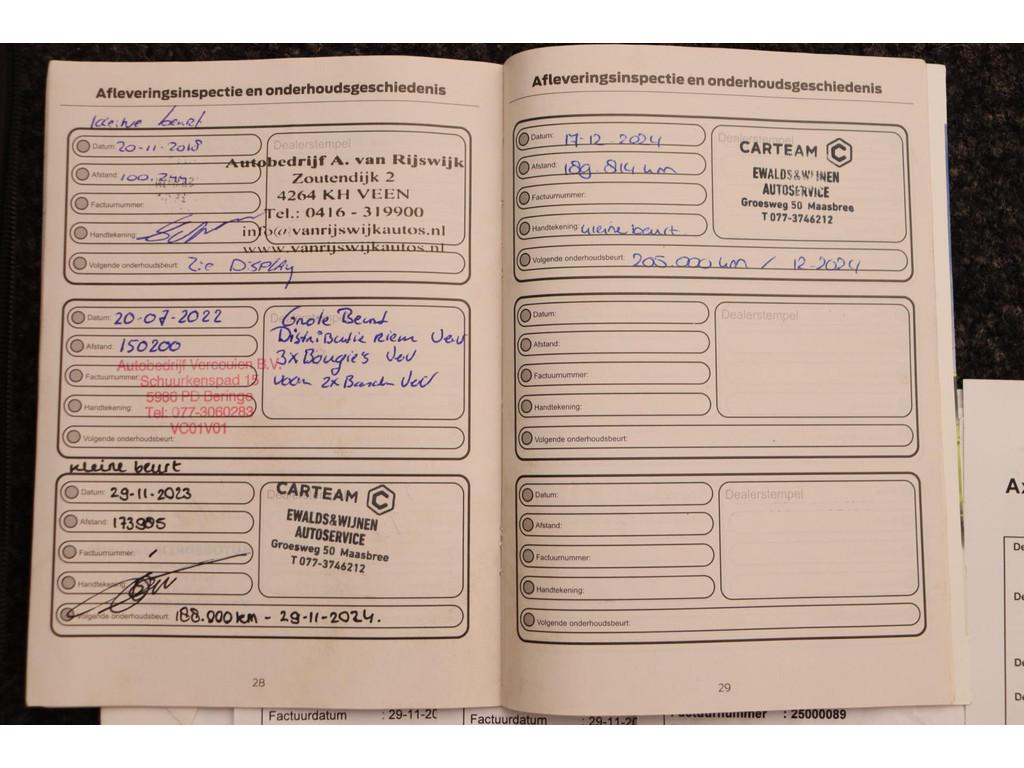 Afleveringsinspectie en onderhoudsgeschiedenis
kleine beurt
Datum: 20-11-2018
Dealerstempel
Autobedrijf A. van Rijswijk
Zoutendijk 2
4264 KH VEEN
Tel.: 0416 - 319900
info@vanrijswijkautos.nl
www.vanrijswijkautos.nl
Afstand:
Factuurnummer:
Handtekening:
Volgende onderhoudsbeurt: Zie DISPLAY
Datum: 20-07-2022
Afstand: 150200
Factuurnummer:
Handtekening:
Autobedrijf Vercoulen B.V.
Schuurkenspad 15
5986 PD Beringe
Tel: 077-3060283
VC01V01
Grote Beurt
Distributie riem Verv
3x Bougie's Verv
voor 2x Banden Verv
Volgende onderhoudsbeurt:
kleine beurt
Datum: 29-11-2023
Afstand: 173985
Factuurnummer: /
Handtekening:
CARTEAM
EWALDS&WIJNEN
AUTOSERVICE
Groesweg 50 Maasbree
T 077-3746212
Volgende onderhoudsbeurt: 188.000km - 29-11-2024.
28
Afleveringsinspectie en onderhoudsgeschiedenis
Datum: 17-12-2024
Afstand: 189.814 km
Factuurnummer:
Handtekening: kleine beurt
Dealerstempel
CARTEAM
EWALDS&WIJNEN
AUTOSERVICE
Groesweg 50 Maasbree
T 077-3746212
Volgende onderhoudsbeurt: 205.000 km / 12-2024
Datum:
Dealerstempel
Afstand:
Factuurnummer:
Handtekening:
Volgende onderhoudsbeurt:
Datum:
Dealerstempel
Afstand:
Factuurnummer:
Handtekening:
Volgende onderhoudsbeurt:
29
Factuurdatum : 29-11-20
Factuurdatum : 29-11-20
Factuurnummer : 25000089